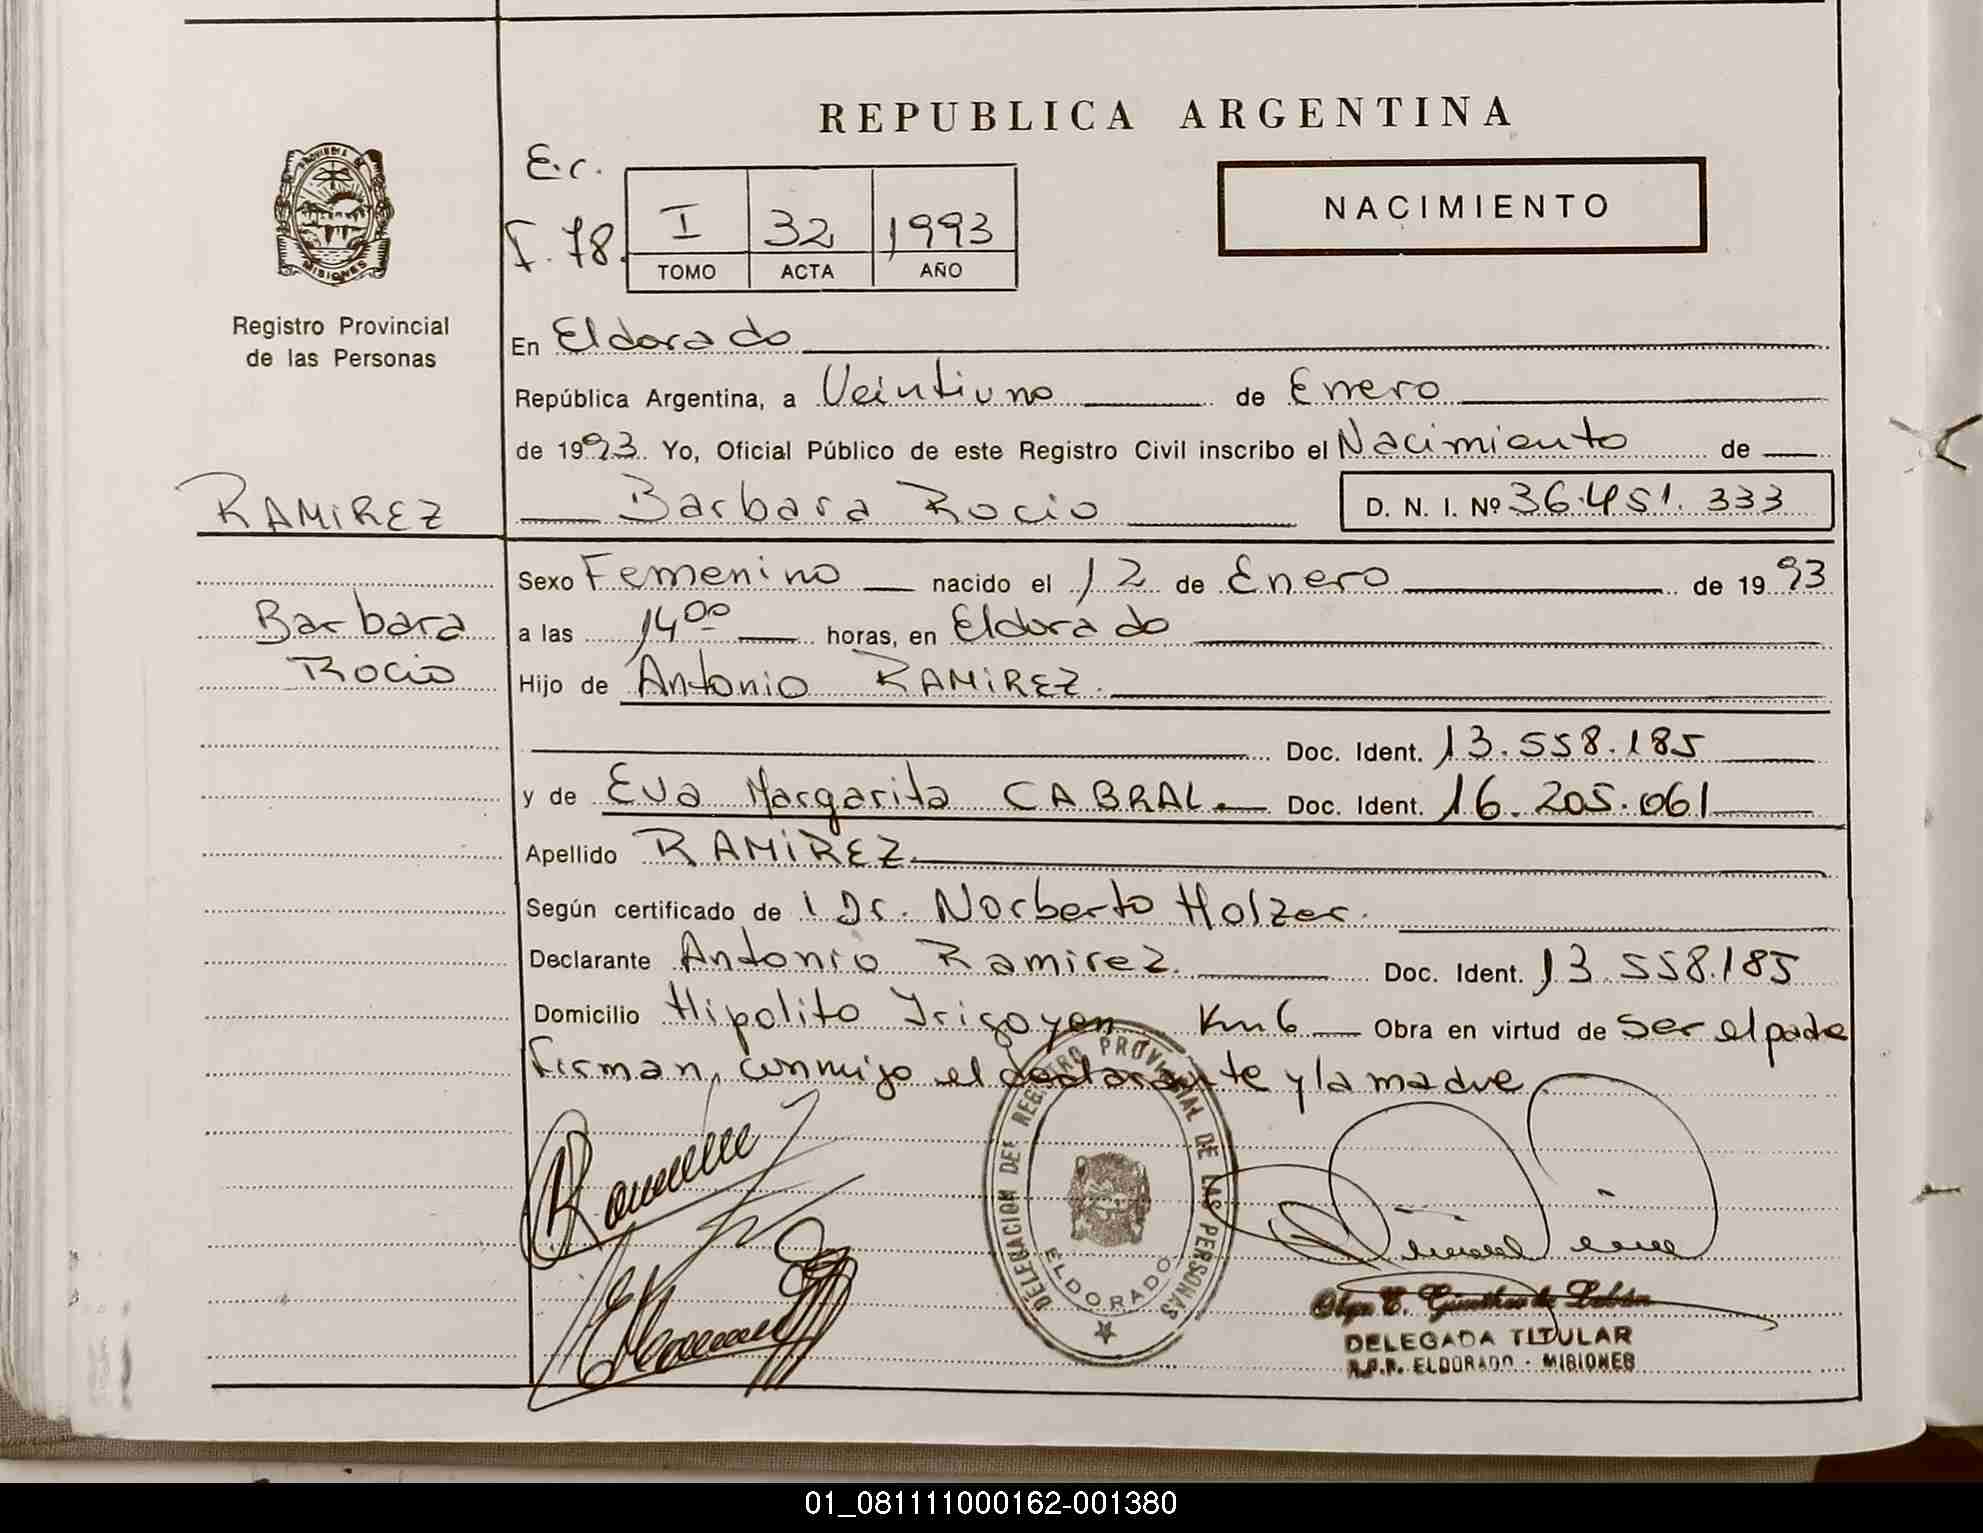 REPUBLICA ARGENTINA
E.c.
I. 78.
I 32 1993
TOMO ACTA AÑO
NACIMIENTO
PROVINCIA DE
MISIONES
Registro Provincial
de las Personas
En Eldorado
República Argentina, a Veintiuno de Enero
de 1993. Yo, Oficial Público de este Registro Civil inscribo el Nacimiento de
RAMIREZ
Barbara Rocio D. N. I. Nº 36.451.333
Sexo Femenino nacido el 12 de Enero de 1993
Barbara
Rocio
a las 14 00 horas, en Eldorado
Hijo de Antonio RAMIREZ.
Doc. Ident. 13.558.185
y de Eva Margarita CABRAL. Doc. Ident. 16.205.061
Apellido RAMIREZ
Según certificado de l Dr. Norberto Holzer.
Declarante Antonio Ramirez. Doc. Ident. 13.558.185
Domicilio Hipolito Irigoyen Km 6 Obra en virtud de Ser el padre
Firman, conmigo el declarante y la madre
DELEGACION DEL REGISTRO PROVINCIAL DE LAS PERSONAS
ELDORADO
DELEGADA TITULAR
R.P.P. ELDORADO - MISIONES
01_081111000162-001380